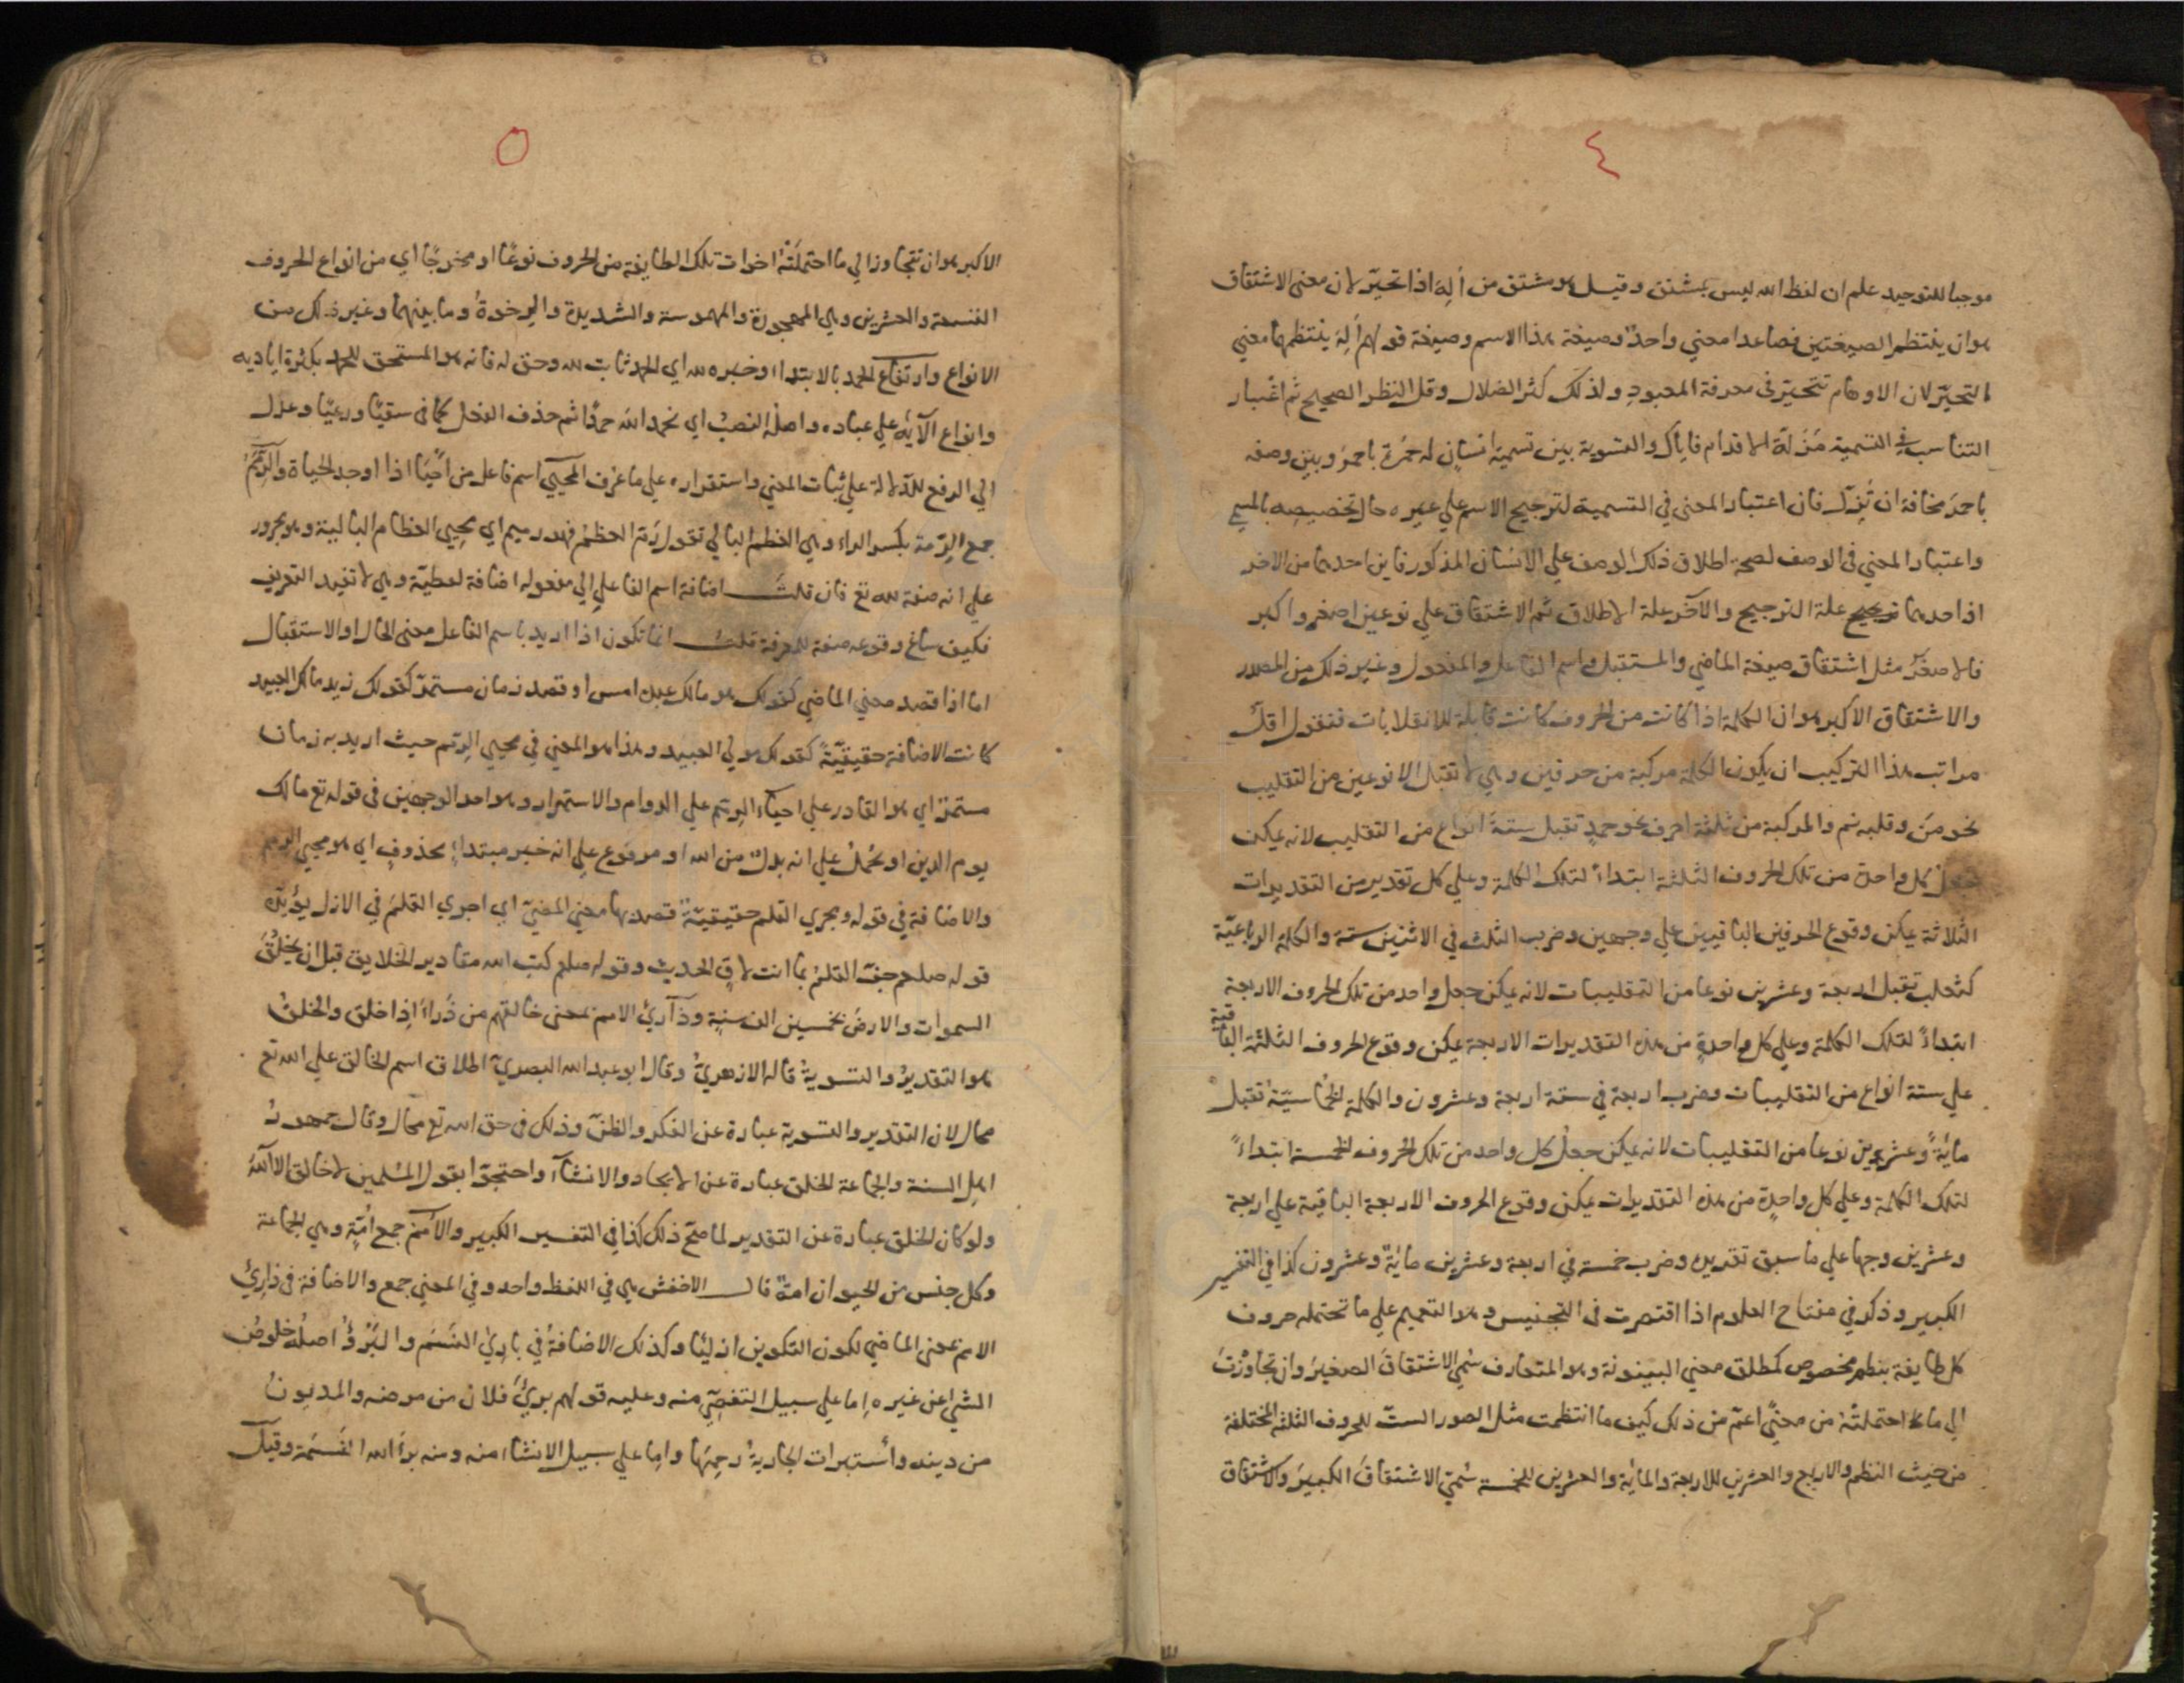 ٤
موجبا للتوحيد علم ان لفظ الله ليس بمشتق وقيل هو مشتق من أَلِهَ اذا تحيّر لان معنى الاشتقاق
هو ان ينتظم الصيغتين فصاعدا معني واحدٌ وصيغة هذا الاسم وصيغة قولهم أَلِهَ ينتظمهما معني
التحيّر لان الاوهام تتحيّر في معرفة المعبودِ ولذلك كثر الضلال وقل النظر الصحيح ثم اعْتبار
التناسب في التسمية مَزَلّة الاقدام فاياك والتسوية بين تسمية انسانٍ له حُمرةٌ باحمرَ وبين وصفه
باحمرَ مخافة ان تُزِلّ فان اعتبار المعنى في التسمية لترجيح الاسم علي غيره حال تخصيصه بالمسمي
واعتبار المعني في الوصف لصحة اطلاق ذلك الوصف علي الانسان المذكور فاين احدهما من الاخر
اذ احدهما علة الترجيح والآخر علة الاطلاق ثم الاشتقاق علي نوعين اصغر واكبر
فالاصغرُ مثل اشتقاق صيغة الماضي والمستقبل واسم الفاعل والمفعول وغير ذلك من المصدر
والاشتقاق الاكبر هو ان الكلمة اذا كانت من الحروف كانت قابلة للانقلابات فنقول اقلّ
مراتب هذا التركيب ان يكون الكلمة مركبة من حرفين وهي لا تقبل الا نوعين من التقليب
نحو من وقلبه نم والمركبة من ثلثة احرف نحو حمدٍ تقبل ستة انواع من التقليب لانه يمكن
جعل كل واحدة من تلك الحروف الثلثة ابتداءً لتلك الكلمة وعلي كل تقدير من التقديرات
الثلاثة يمكن وقوع الحرفين الباقيين علي وجهين وضرب الثلث في الاثنين ستة والكلمة الرباعيّة
كثعلب تقبل اربعة وعشرين نوعا من التقليبات لانه يمكن جعل واحد من تلك الحروف الاربعة
ابتداءً لتلك الكلمة وعلي كل واحدةٍ من هذه التقديرات الاربعة يمكن وقوع الحروف الثلثة الباقية
علي ستة انواع من التقليبات وضرب اربعة في ستة اربعة وعشرون والكلمة الخماسيّة تقبل
مايةً وعشرين نوعا من التقليبات لانه يمكن جعل كل واحد من تلك الحروف الخمسة ابتداءً
لتلك الكلمة وعلي كل واحدةٍ من هذه التقديرات يمكن وقوع الحروف الاربعة الباقية علي اربعة
وعشرين وجها علي ما سبق تقديره وضرب خمسة في اربعة وعشرين مايةٌ وعشرون كذا في التفسير
الكبير وذكر في مفتاح العلوم اذا اقتصرت في التجنيس وهو التعميم علي ما تحتمله حروف
كل طايفة بنظم مخصوص كمطلق معني البينونة وهو المتعارف سُمي الاشتقاقَ الصغيرَ وان تجاوزْتَ
الي ما احتملتْه من معنًي اعمّ من ذلك كيف ما انتظمت مثل الصور الستّ للحروف الثلثة المختلفة
من حيث النظم والاربع والعشرين للاربعة والماية والعشرين للخمسة سُمّي الاشتقاقَ الكبيرَ والاشتقاق
٥
الاكبر هو ان تتجاوز الي ما احتملَتْه اخوات تلك الطايفة من الحروف نوعًا او مخرجًا اي من انواع الحروف
التسعة والعشرين وهي المهجورة والمهموسة والشديدة والرخوةُ وما بينهما وغير ذلك من
الانواع وارتفاع الحمد بالابتداء وخبره لله اي الحمد ثابت لله وحق له فانه هو المستحق للحمد بكثرة اياديه
وانواع آلآيِه علي عباده واصله النصبُ اي نحمد الله حمدًا ثم حذف الفعل كما في سقيًا ورعيًا وعدل
الي الرفع للدّلالة علي ثبات المعني واستقراره علي ما عُرف المحيي اسم فاعل من احْيَا اذا اوجد الحياة والرِّمَمُ
جمع الرِمّة بكسر الراء وهي العظم البالي تقول رَمّ العظمُ فهو رميم اي محيي العظام البالية وهو مجرور
علي انه صفة لله تع فان قلتَ اضافة اسم الفاعل الي مفعوله اضافة لفظيّة وهي لا تفيد التعريف
فكيف ساغ وقوعه صفة للمعرفة قلتُ انما تكون اذا اريد باسم الفاعل معني الحال او الاستقبال
اما اذا قصد معني الماضي كقولك هو مالك عبده امس او قصد زمان مستمرّ كقولك زيد مالك العبيد
كانت الاضافة حقيقيّةً كقولك مولي العبيد وهذا هو المعني في محيي الرمم حيث اريد به زمان
مستمرّ اي هو القادر علي احياء الرمم علي الدوام والاستمرار وهو احد الوجهين في قوله تع مالك
يوم الدين او يُحمَلُ علي انه بدلٌ من الله او مرفوع علي انه خبر مبتداءٍ محذوفٍ اي هو محيي الرمم
والاضافة في قوله ومجري القلم حقيقيّة قصد بها معني المضيّ اي اجري القلمَ في الازل يؤيّده
قوله صلعم جفّ القلمُ بما انت لاقٍ الحديث وقوله صلعم كتب الله مقادير الخلايق قبل ان يخلُقَ
السموات والارضَ بخمسين الف سنةٍ وذآرئ الامم بمعنى خالقهم من ذَرَأَ اِذا خلق والخلقُ
هو التقديرُ والتسويةُ قاله الازهريُّ وقال ابو عبد الله البصريّ اطلاق اسم الخالق علي الله تع
محال لان التقدير والتسوية عبارة عن الفكر والظنّ وذلك في حق الله تع محال وقال جمهورُ
اهل السنة والجماعة الخلق عبارة عن الايجاد والانشآء واحتجّوا بقول المسلمين لا خالق الا اللهُ
ولو كان الخلق عبارة عن التقدير لما صحّ ذلك كذا في التفسير الكبير والاُمَمُ جمع اُمّةٍ وهي الجماعة
وكل جنس من الحيوان امةٌ قال الاخفش هي في اللفظ واحد وفي المعني جمع والاضافة في ذارئ
الامم بمعني الماضي لكون التكوين ازليّا وكذلك الاضافةُ في بارئِ النَّسَم والبُرْؤُ اصلُه خلوصُ
الشئ عن غيره اِما علي سبيل التفصّي منه وعليه قولهم برِئَ فلان من مرضه والمديونُ
من دينه واسْتبرات الجاريةُ رحِمَها واِما علي سبيل الانشاء منه ومنه برأَ الله النَّسَمَة وقيل